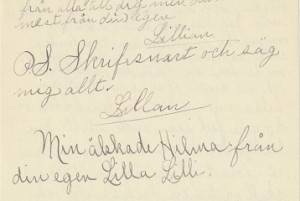 från alla till dig men
mest från din egen
Lillian
P.S. Skrif snart och säg
mig allt.
Lillan
Min älskade Hilma från
din egen Lilla Lilli.